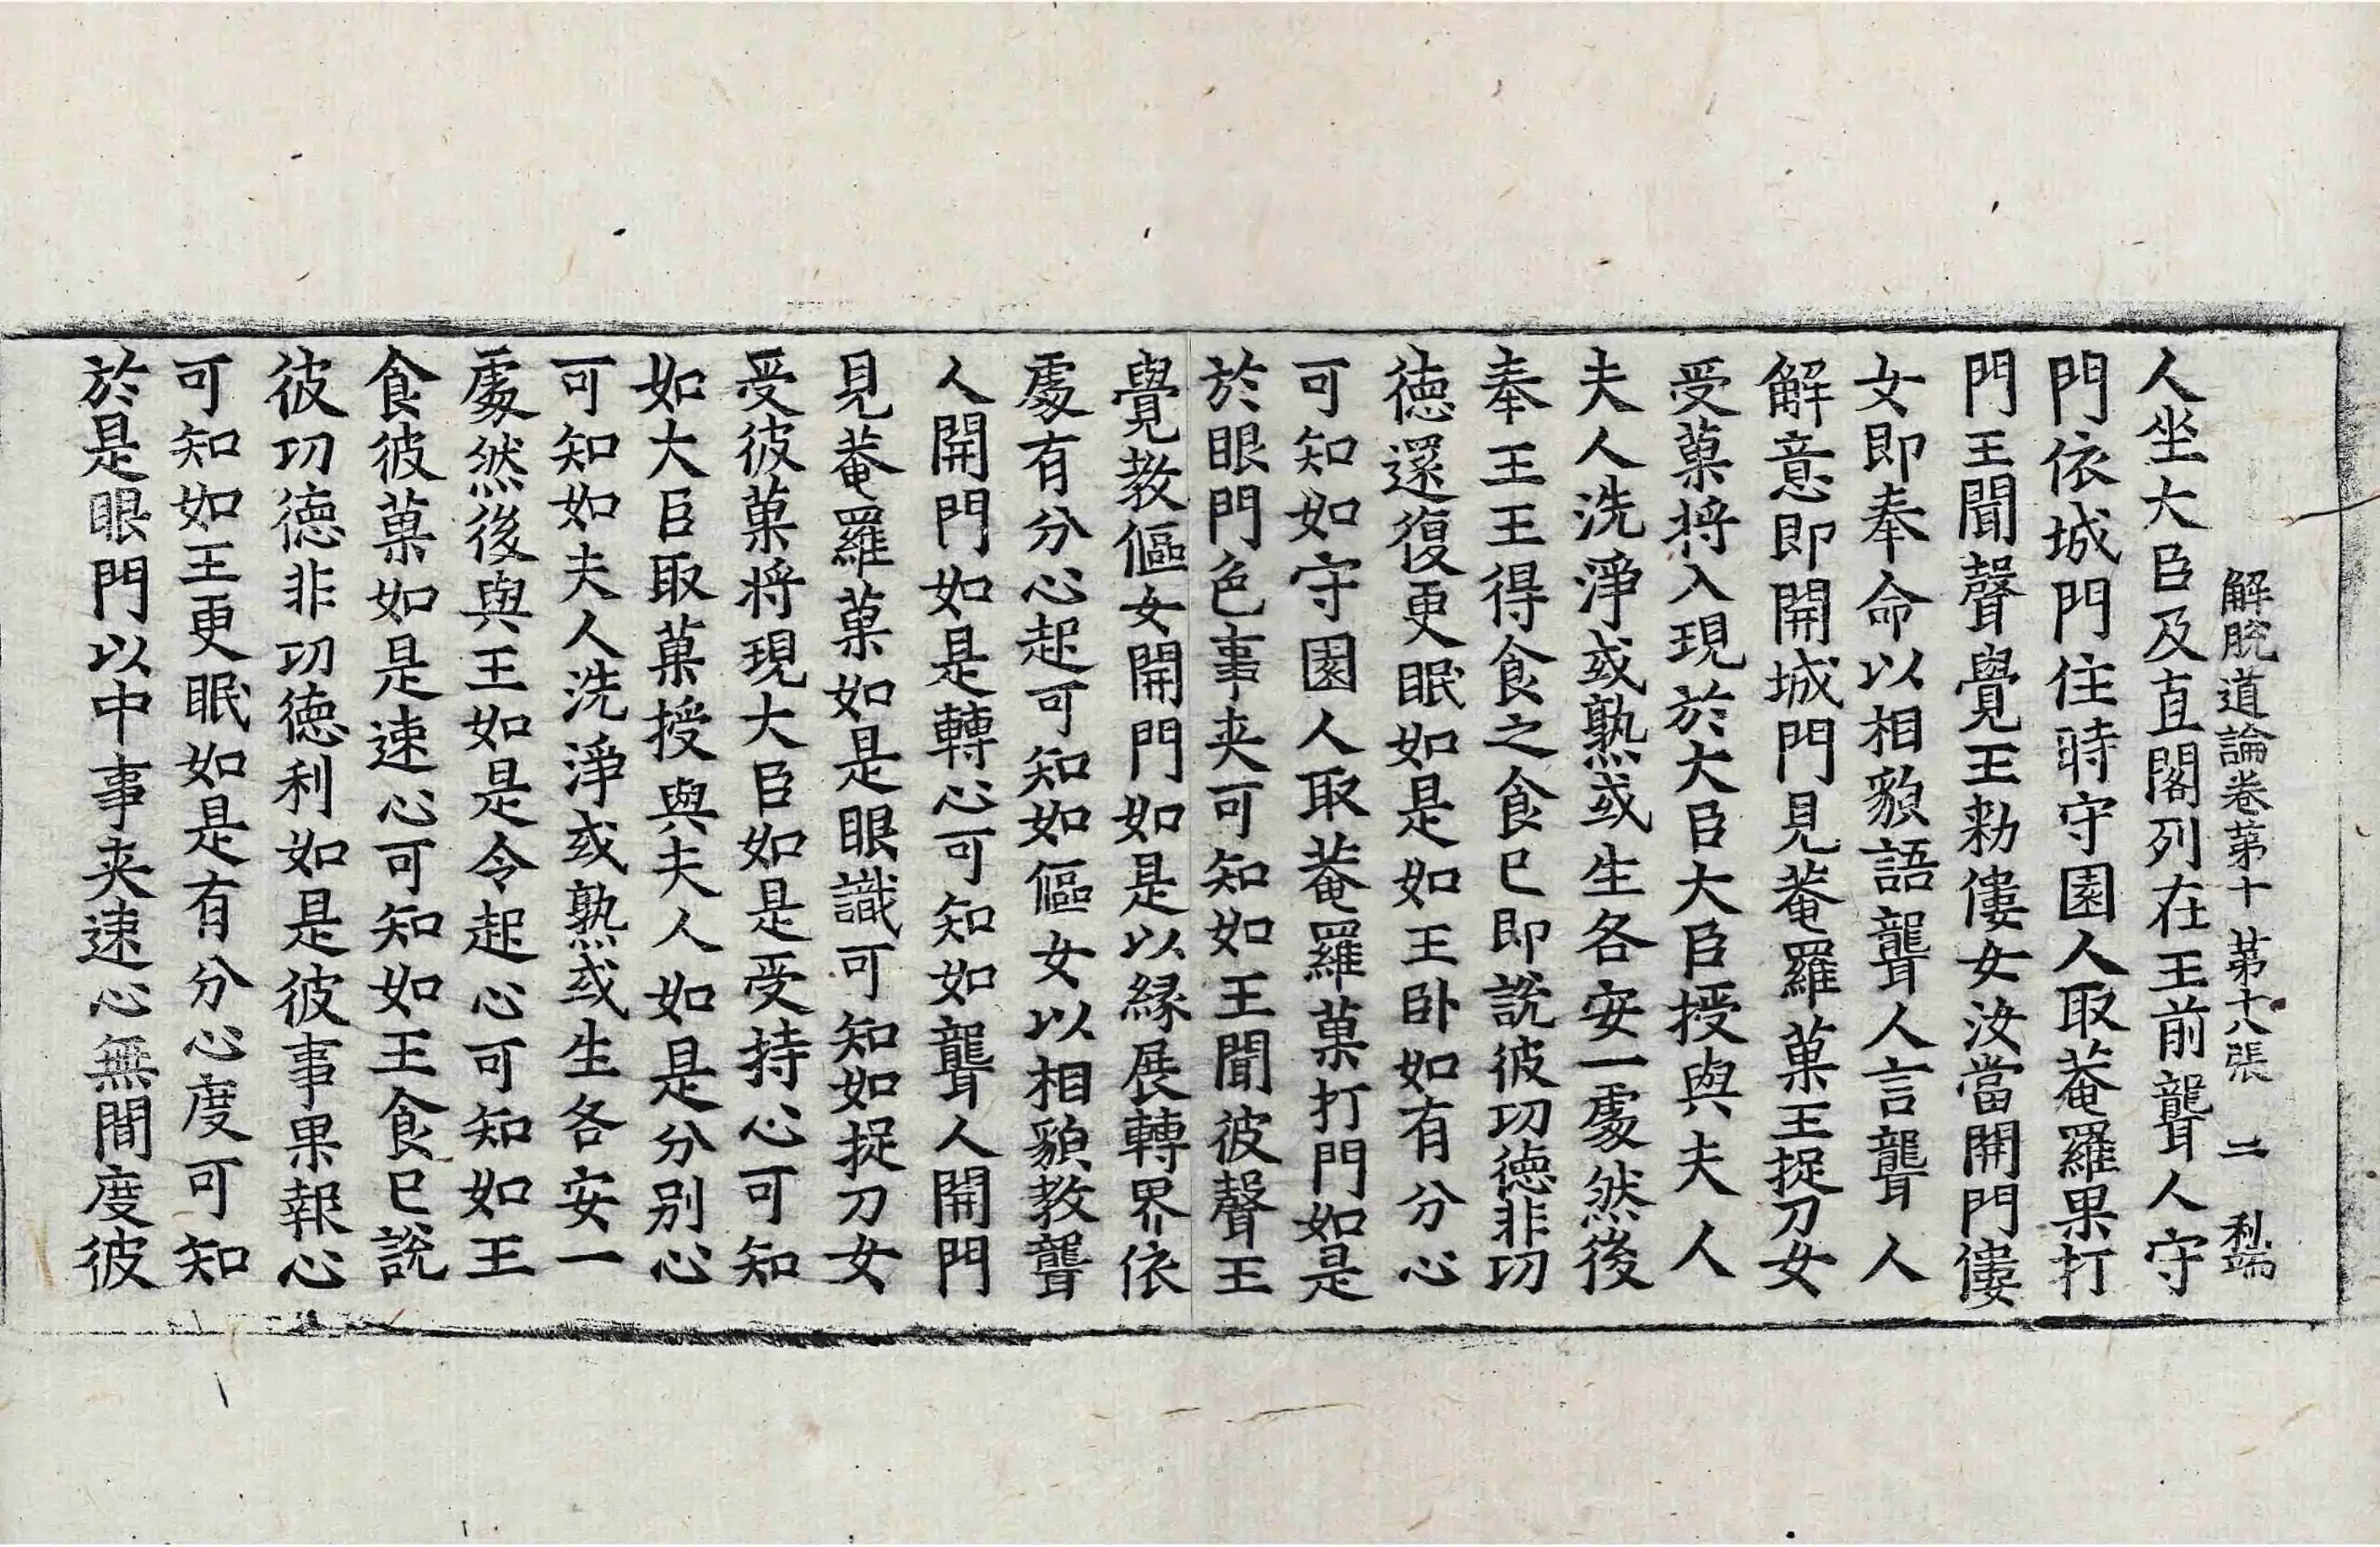 解脫道論卷第十 第十八張 二 利端
人坐大臣及直閣列在王前聾人守
門依城門住時守園人取菴羅果打
門王聞聲覺王勑僂女汝當開門僂
女即奉命以相㒵語聾人言聾人
解意即開城門見菴羅菓王捉刀女
受菓将入現於大臣大臣授與夫人
夫人洗淨或熟或生各安一處然後
奉王王得食之食已即說彼功德非功
德還復更眠如是如王卧如有分心
可知如守園人取菴羅菓打門如是
於眼門色事夾可知如王聞彼聲王
覺教傴女開門如是以緣展轉界依
處有分心起可知如傴女以相㒵教聾
人開門如是轉心可知如聾人開門
見菴羅菓如是眼識可知如捉刀女
受彼菓将現大臣如是受持心可知
如大臣取菓授與夫人如是分別心
可知如夫人洗淨或熟或生各安一
處然後與王如是令起心可知如王
食彼菓如是速心可知如王食已說
彼功德非功德利如是彼事果報心
可知如王更眠如是有分心度可知
於是眼門以中事夾速心無間度彼